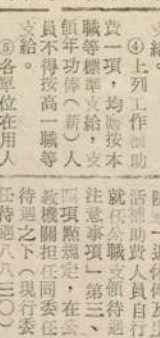 支給。
④上列工作補助
費一項，均應按本
職等標準支給，支
領年功俸（薪）人
員不得按高一職等
支給。
⑤各單位在用人
活補助費人員自行
就任公職支領待遇
注意事項」第三、
四項點規定，在公
教機關担任同委任
待遇之下（現行委
任待遇八八三〇）